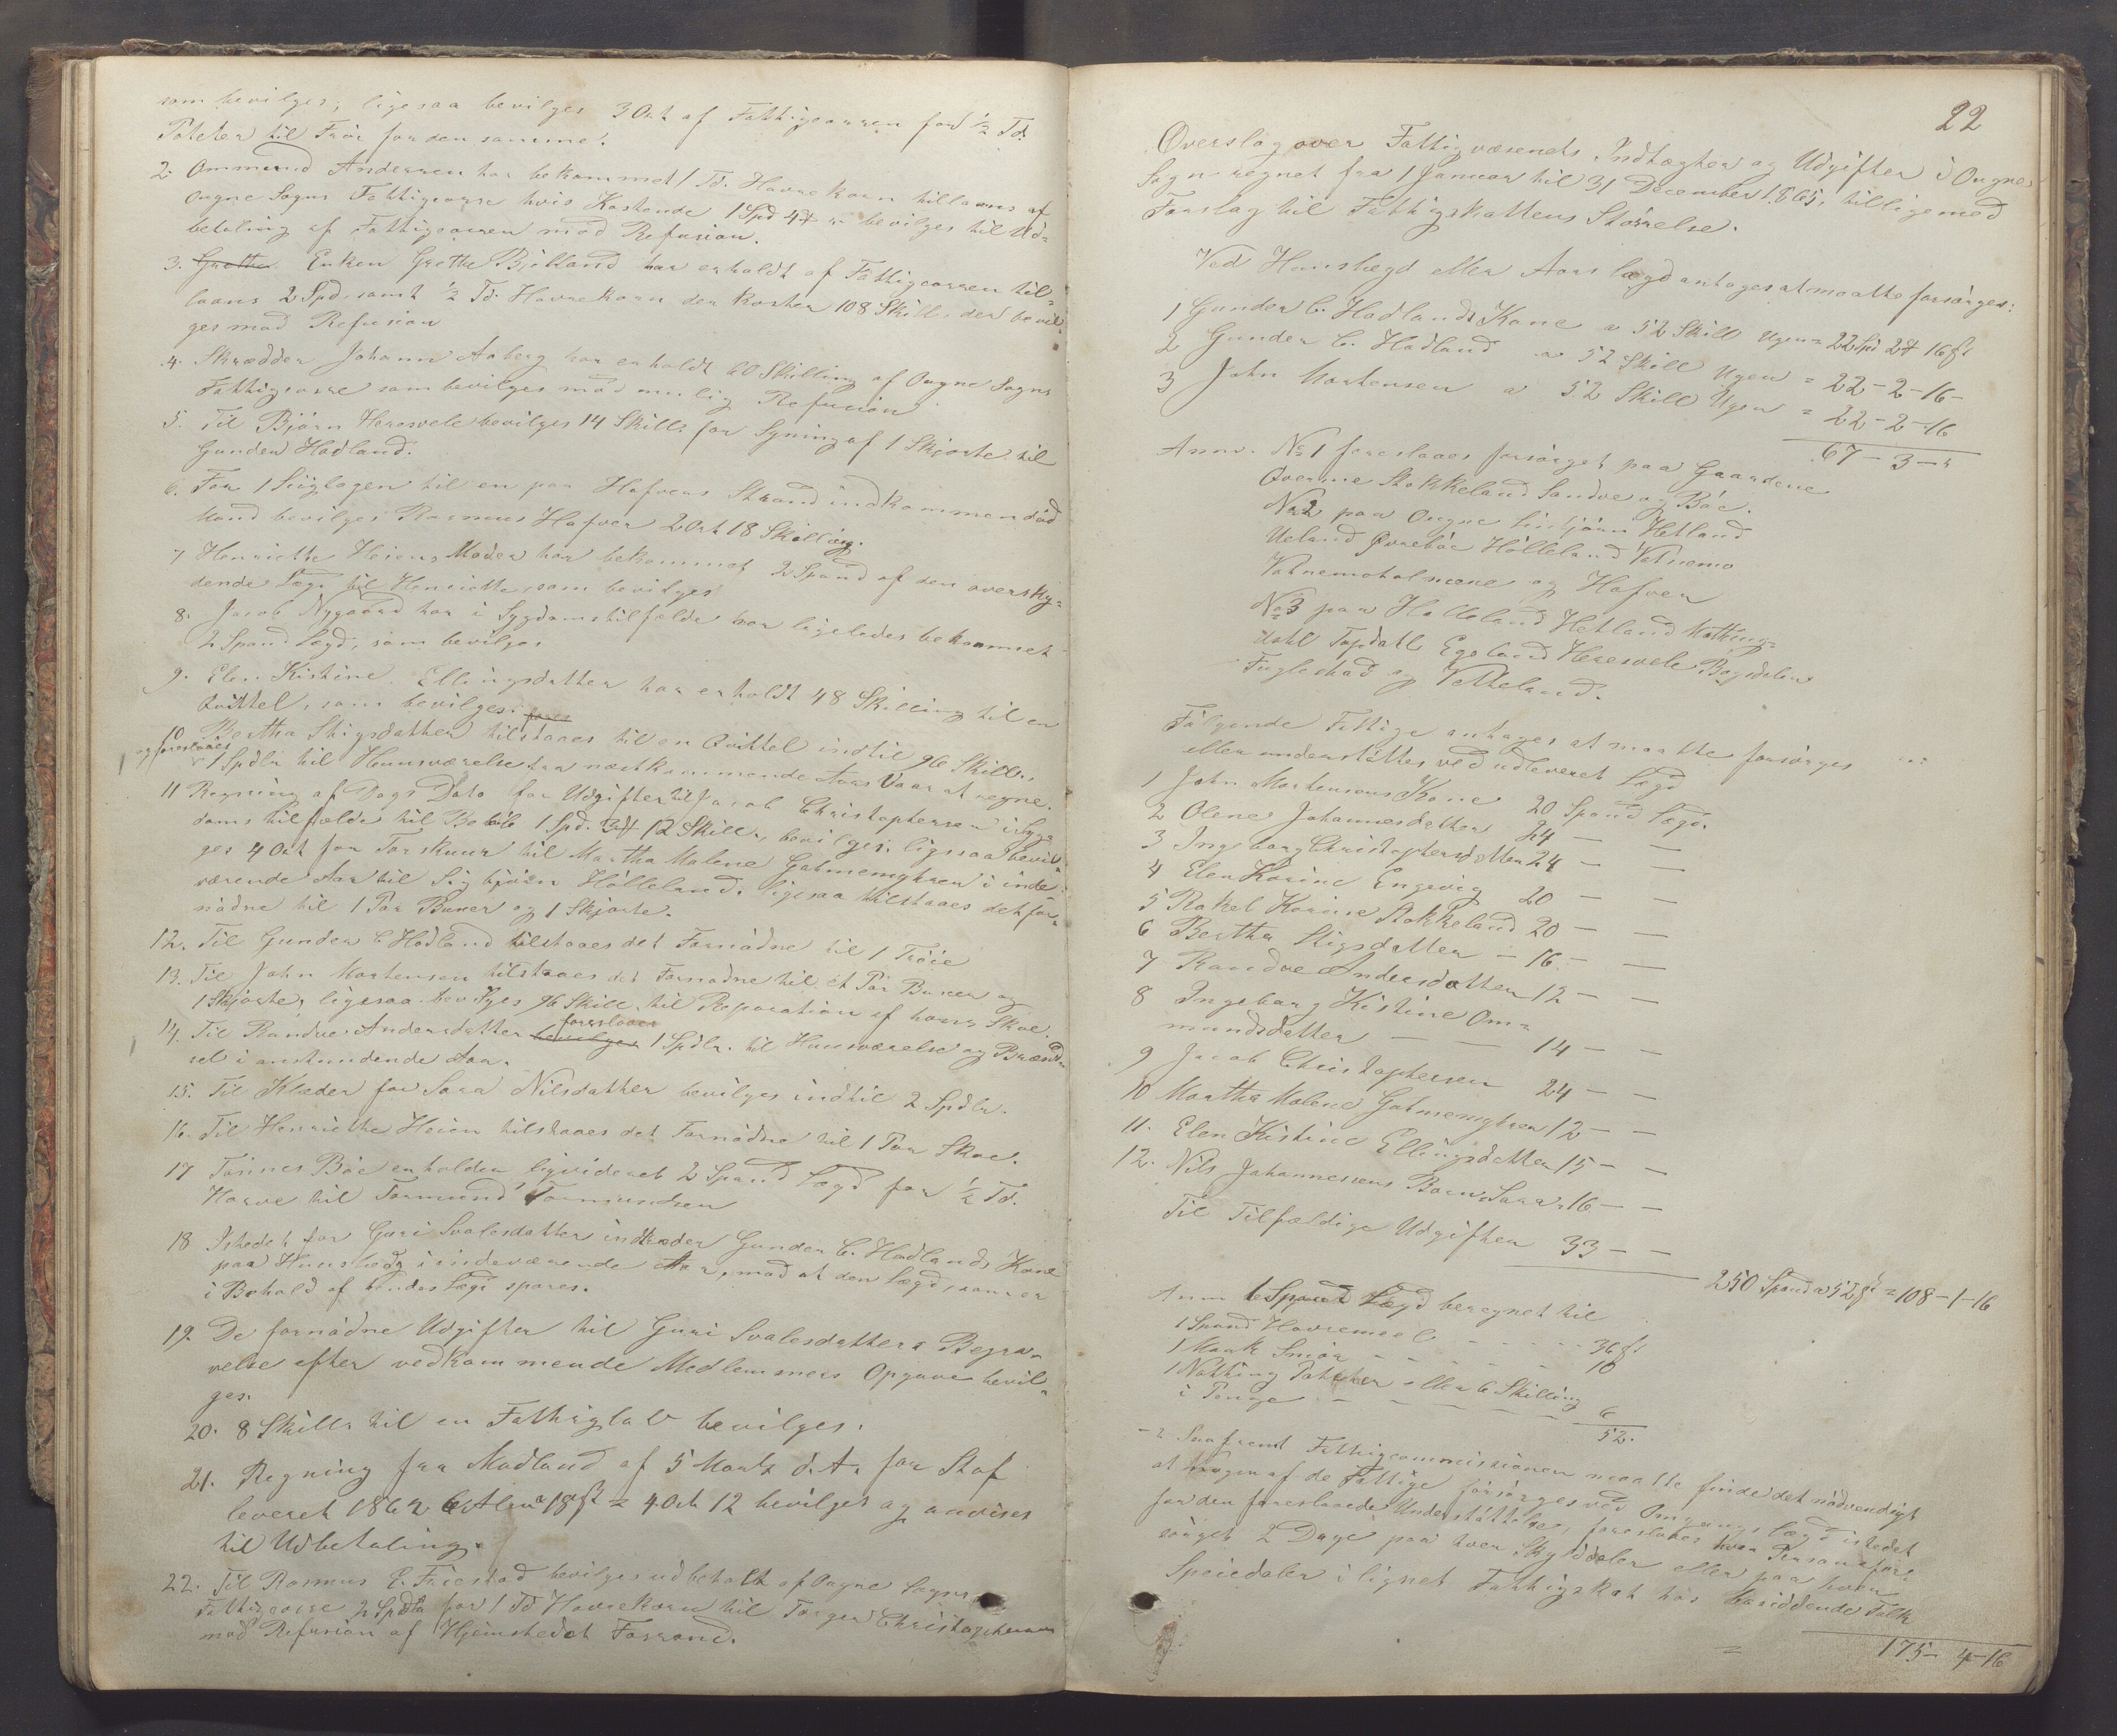 som bevilges; ligesaa bevilges 3 Ort af Fattigcassen for ½ Td.
Poteter til Frøe for den samme.
2. Ommund Andersen har bekommet 1 Td. Havrekorn tillaans af
Ougne Sogns Fattigcasse hvis Kostende 1 Spd 4 bevilges til Ud=
betaling af Fattigcassen mod Refusion.
3. Grethe Enken Grethe Bjelland har erholdt af Fattigcassen til=
laans 2 Spd. samt ½ Td. Havrekorn der koster 108 Skill., der bevil=
ges mod Refusion
4. Skrædder Johann Aaberg har erholdt 60 Skilling af Ougne Sogns
Fattigcasse som bevilges mod mulig Refusion
5. Til Bjørn Heresvele bevilges 14 Skill. for Syning af 1 Skjorte til
Gunder Hadland.
6. For 1 Liiglagen til en paa Hafvens Strand indkommen død
Mand bevilges Rasmus Hafven 2 Ort 18 Skilling.
7 Henriette Heiens Moder har bekommet 2 Spand af den oversky=
dende Lægd til Henriette, som bevilges
8. Jacob Nygaard har i Sygdomstilfælde har ligeledes bekommet
2 Spand Lægd, som bevilges
9. Elen Kistine Ellingsdatter har erholdt 48 Skilling til en
Qvittel, som bevilges.
10 Bertha Stigsdatter tilstaaes til en Qvittel indtil 96 Skill.,
og foreslaaes
1 Spdlr til Huusværelse fra næstkommende Aars Vaar at regne.
11 Regning af Dags Dato for Udgifter til Jacob Christophersen i Syg=
doms tilfælde til Beløb 1 Spd. 3 12 Skill., bevilges. ligesaa bevil=
ges 4 Ort for Torskuur til Martha Malene Gatnemyhren i inde=
værende Aar til Sigbjørn Hølleland. ligesaa tilstaaes det for=
nødne til 1 Par Buxer og 1 Skjorte.
12. Til Gunder C Hadland tilstaaes det Fornødne til 1 Trøie
13. Til John Mortensen tilstaaes det Fornødne til et Par Buxer og
1 Skjorte, ligesaa bevilges 96 Skill. til Reparation af hans Skoe.
foreslaaes
14. Til Randve Andersdatter bevilges 1 Spdlr. til Huusværelse og Brænd=
sel i anstundende Aar.
15. Til Klæder for Sara Nilsdatter bevilges indtil 2 Spdlr.
16. Til Henriette Heien tilstaaes det Fornødne til 1 Par Skoe.
17 Tønnes Bøe erholder ligvideret 2 Spand Lægd for ½ Td.
Havre til Tormund Tormundsen
18 Istedet for Guri Svalesdatter indtræder Gunder C. Hadlands Kone
paa Huuslægd i indeværende Aar, mod at den Lægd, som er
i Behold af hendes Lægd spares.
19. De fornødne Udgifter til Guri Svalesdatters Begra=
velse efter vedkommende Medlemmers Opgave bevil=
ges.
20. 8 Skill. til en Fattiglov bevilges.
21. Regning fra Madland af 5 Marts d. A. for Stof
leveret 1862 6 Alen a 18 ß = 4 Ort 12 bevilges og anvises
til Udbetaling.
22. Til Rasmus E. Friestad bevilges udbetalt af Ougne Sogns
Fattigcasse 2 Spdlr for 1 Td Havrekorn til Torger Christophersen
mod Refusion af Hjemstedet Forsand.
22
Overslag over Fattigvæsenets Indtægter og Udgifter i Ougne
Sogn regnet fra 1 Januar til 31 December 1865, tilligemed
Forslag til Fattigskattens Størrelse.
Ved Huuslægd eller Aars lægd antages at maatte forsørges:
1 Gunder C. Hadlands Kone a 52 Skill Ugen = 22 Spd 2 16 ß
2 Gunder C. Hadland a 52 Skill Ugen = 22 - 2 - 16 -
3 John Mortensen a 52 Skill Ugen = 22 - 2 - 16
67 - 3 - "
Anm. No 1 foreslaaes forsørget paa Gaardene
Qverme Stokkeland Sandve og Bøe.
No 2 paa Ougne Hetland
Ueland Øvrebøe Hølleland Vetnemo
Vatnemoholmene og Hafven
No 3 paa Holleland Hetland
dahl Topdahl Egeland Heresvele Bogsdalen
Fuglestad og Vetteland.
Følgende Fattige antages at maatte forsørges
eller understøttes ved udleveret Lægd
1 John Mortensens Kone 20 Spand Lægd.
2 Olene Johannesdatter 24 — —
3 Ingeborg Christophersdatter 24 — —
4 Elen Karine Engevig 20 — —
5 Rakel Karine Stokkeland 20 — —
6 Bertha Stigsdatter — 16 — —
7 Randve Andersdatter 12 — —
8 Ingeborg Kistine Om=
mundsdatter — — 14 — —
9 Jacob Christophersen 24 — —
10 Martha Malene Gatnemyhren 12 — —
11. Elen Kistine Ellingsdatter 15 — —
12. Nils Johannesens Barn Sara 16 — —
Til Tilfældige Udgifter 33 — —
250 Spand a 52 ß = 108 - 1 - 16
Anm 1 Spand Lægd beregnet til
1 Spand Havremeel - - - - 36 ß
1 Mark Smør - - - - - 10
1 Notting Poteter eller 6 Skilling
i Penge - - - - - 6
52.
Saafremt Fattigcommissionen maatte finde det nødvendigt
at nogen af de Fattige forsørges ved Omgangs lægd istedet
for den foreslaaede Understøttelse, foreslaaes hver Person afor=
sørget 2 Dage paa hver Skylddaler eller paa hver
Speciedaler i lignet Fattigskat hos besiddende Folk
= 175 - 4 - 16